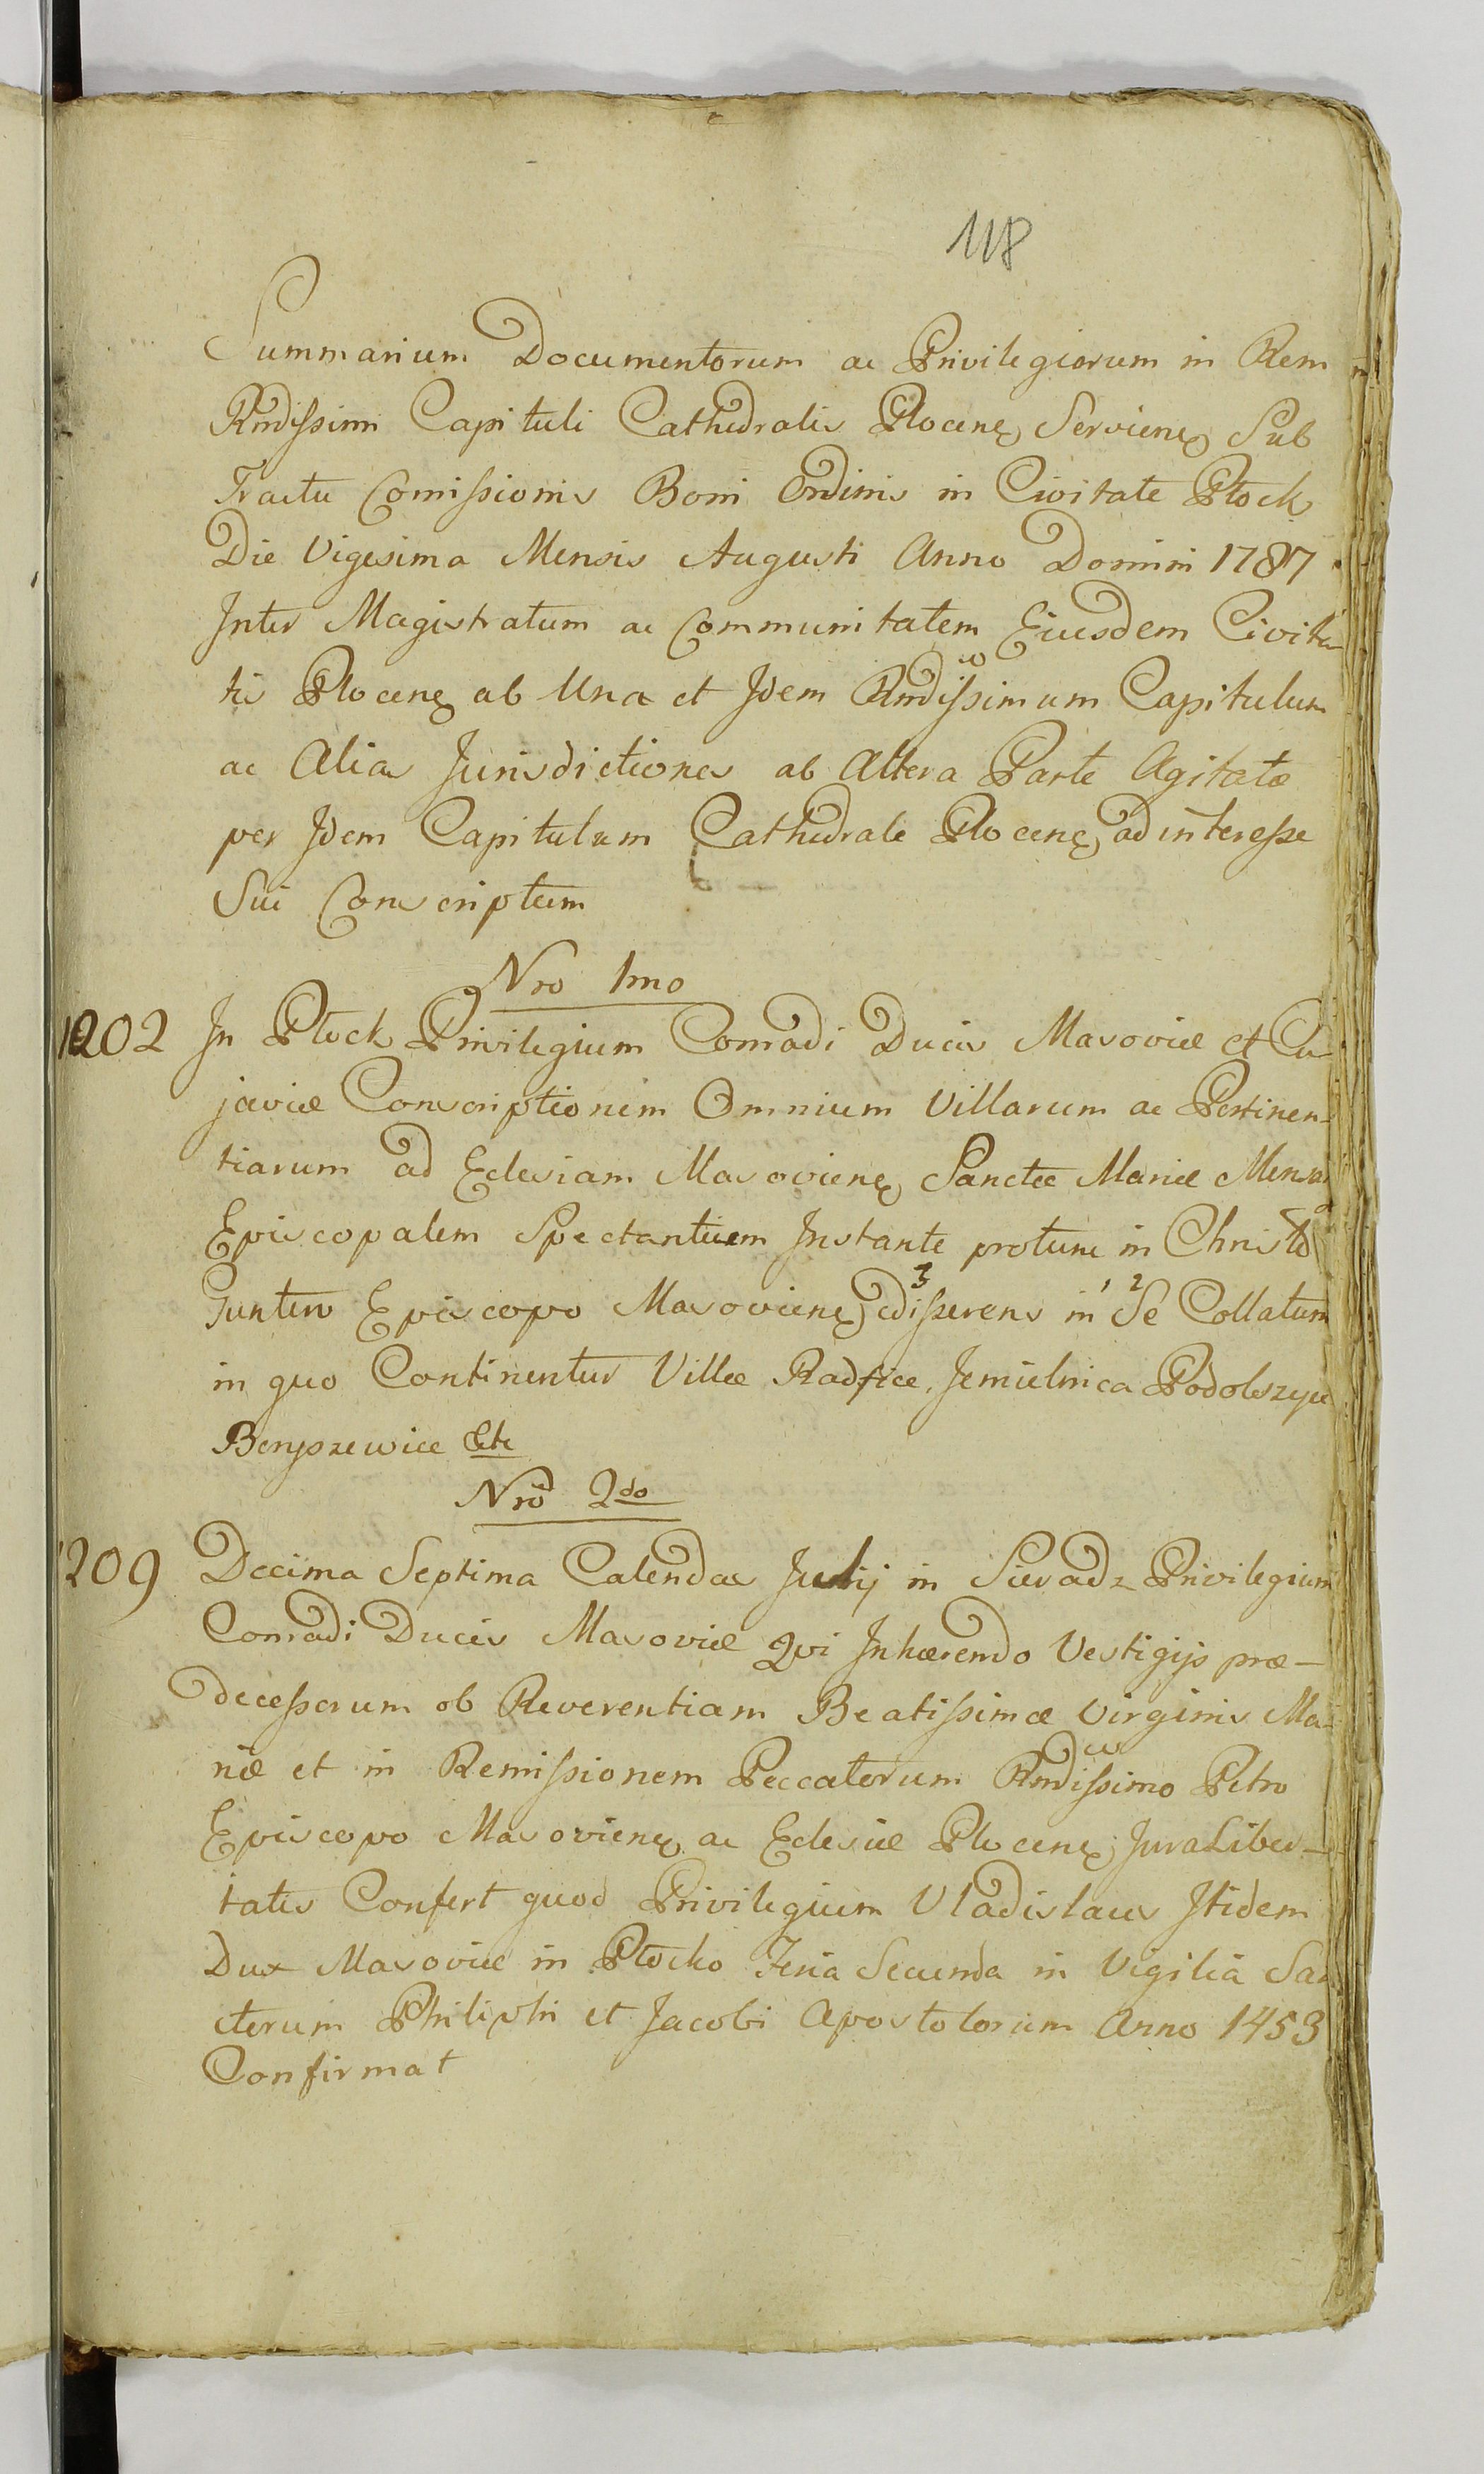 118
Summarium Documentorum ac Privilegiorum in Rem
Rndissimi Capituli Cathedralis Plocens Serviens Sub
Tractu Comissionis Boni Ordinis in Civitate Płock
Die Vigesima Mensis Augusti Anno Domini 1787
Inter Magistratum ac Communitatem Eiusdem Civita
tis Plocens ab Una et Idem Rndissimum Capitulum
ac Alias Jurisdictiones ab Altera Parte Agitatæ
per Idem Capitulum Cathedrale Plocens ad interesse
Sui Conscriptum
Nro 1mo
1202 In Płock Privilegium Conradi Ducis Masoviæ et Cu
javiæ Conscriptionem Omnium Villarum ac Pertinen-
tiarum ad Eclesiam Masoviens Sanctæ Mariæ Mensam
Episcopalem Spectantium Instante protunc in Christo
Guntero Episcopo Masoviens edisserens 3 in 1 Se 2 Collatum
in quo Continentur Villæ Radzice, Jemielnica Podolszyce
Boryszewice Etc
Nro 2do
1209 Decima Septima Calendas Julij in Sieradz Privilegium
Conradi Ducis Masoviæ Qui Inhærendo Vestigijs præ-
decessorum ob Reverentiam Beatissimæ Virginis Ma-
riæ et in Remissionem Peccatorum Rndissimo Petro
Episcopo Masoviens ac Eclesiæ Plocens Jura Liber-
tatis Confert quod Privilegium Vladislaus Itidem
Dux Masoviæ in Płocko Feria Secunda in Vigilia San
ctorum Philiphi et Jacobi Apostolorum Anno 1453
Confirmat